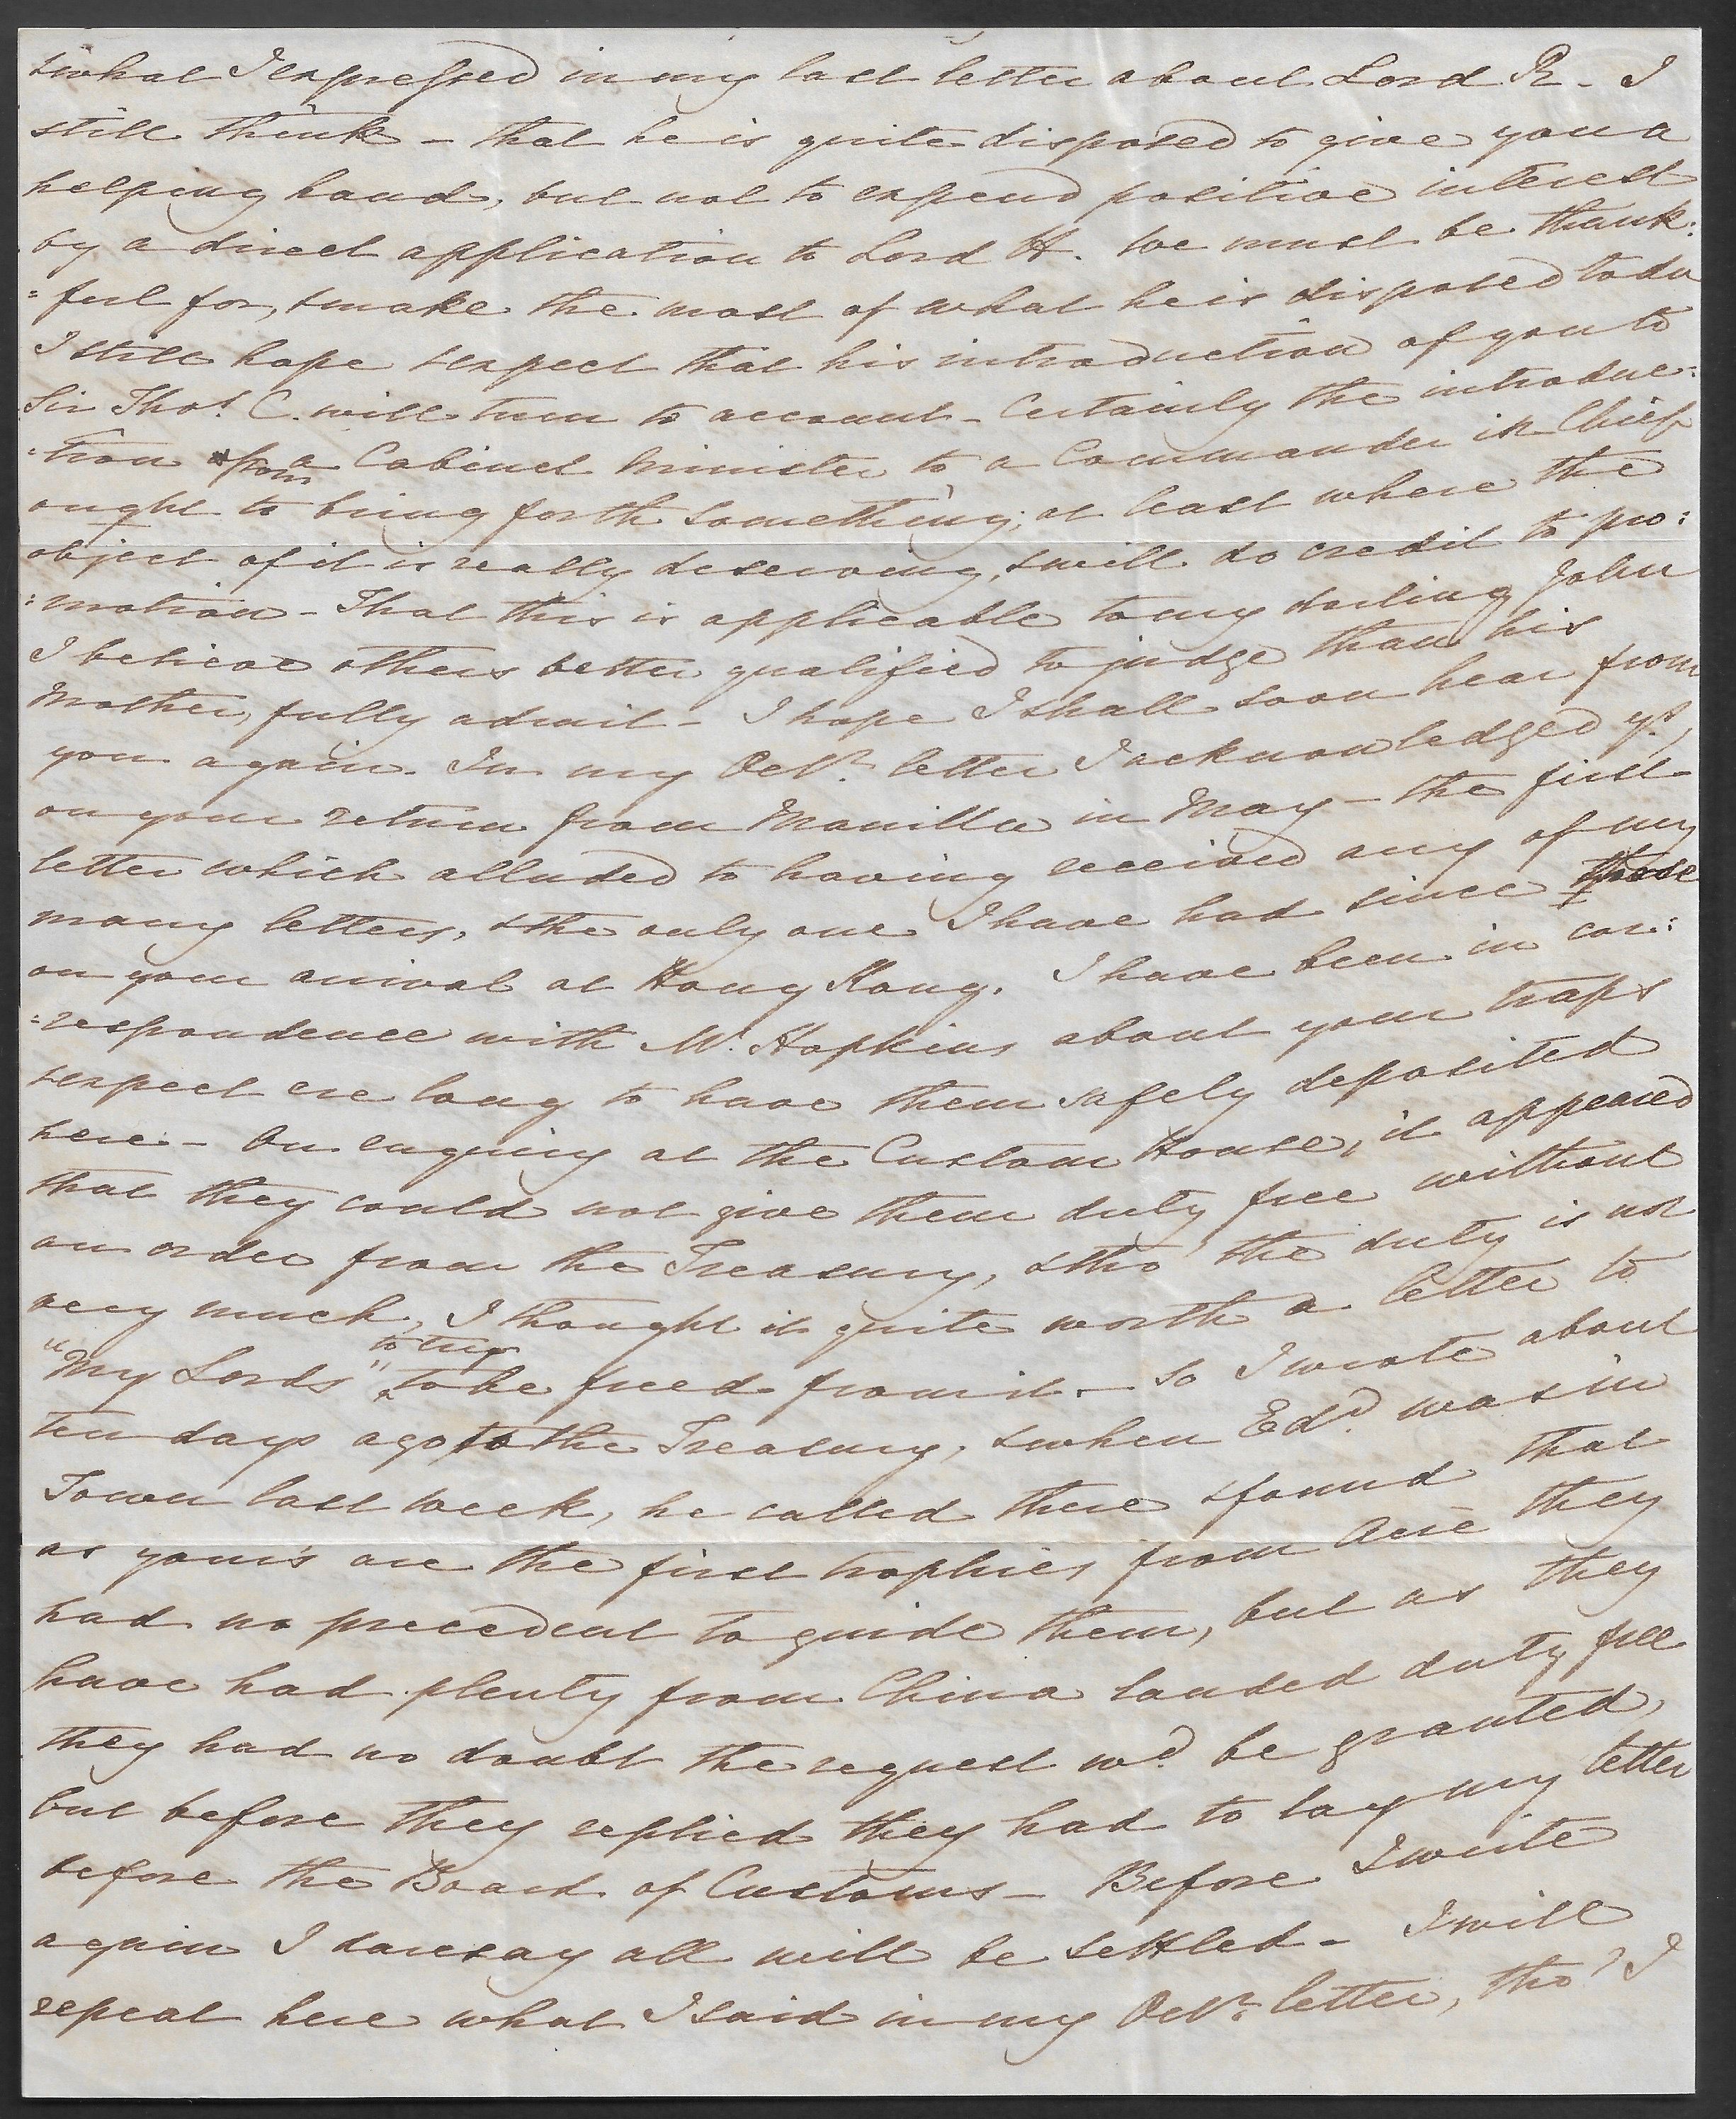 & what I expressed in my last letter about Lord R - I
still think - that he is quite disposed to give you a
helping hand, but not to expend positive interest
by a direct application to Lord H. We must be thank:
:ful for, & make the most of what he is disposed to do
I still hope & expect that his introduction of you to
Sir Thos. C. will turn to account - Certainly the introduc:
:tion from a Cabinet Minister to a Commander in Chief
ought to bring forth something; at least where the
object of it is really deserving, & will do credit to pro:
:motion - That this is applicable to my darling John
I believe others better qualified to judge than his
Mother, fully admit - I hope I shall soon hear from
you again. In my Octr. letter I acknowledged yrs.
on your return from Manilla in May - the first
letter which alluded to having received any of my
many letters, & the only one I have had since those
on your arrival at Hong Kong. I have been in cor:
:respondence with Mr. Hopkins about your traps
& expect ere long to have them safely deposited
here - On enquiry at the Custom House, it appeared
that they could not give them duty free without
an order from the Treasury, & tho' the duty is not
very much, I thought it quite worth a letter to
"My Lords" to try to be freed from it. - So I wrote about
ten days ago to the Treasury, & when Edd. was in
Town last week, he called there & found that
as your's are the first trophies from Acre they
had no precedent to guide them, but as they
have had plenty from China landed duty free
they had no doubt the request wd. be granted,
but before they replied they had to lay my letter
before the Board of Customs - Before I write
again I daresay all will be settled - I will
repeat here what I said in my Octr. letter, tho' I